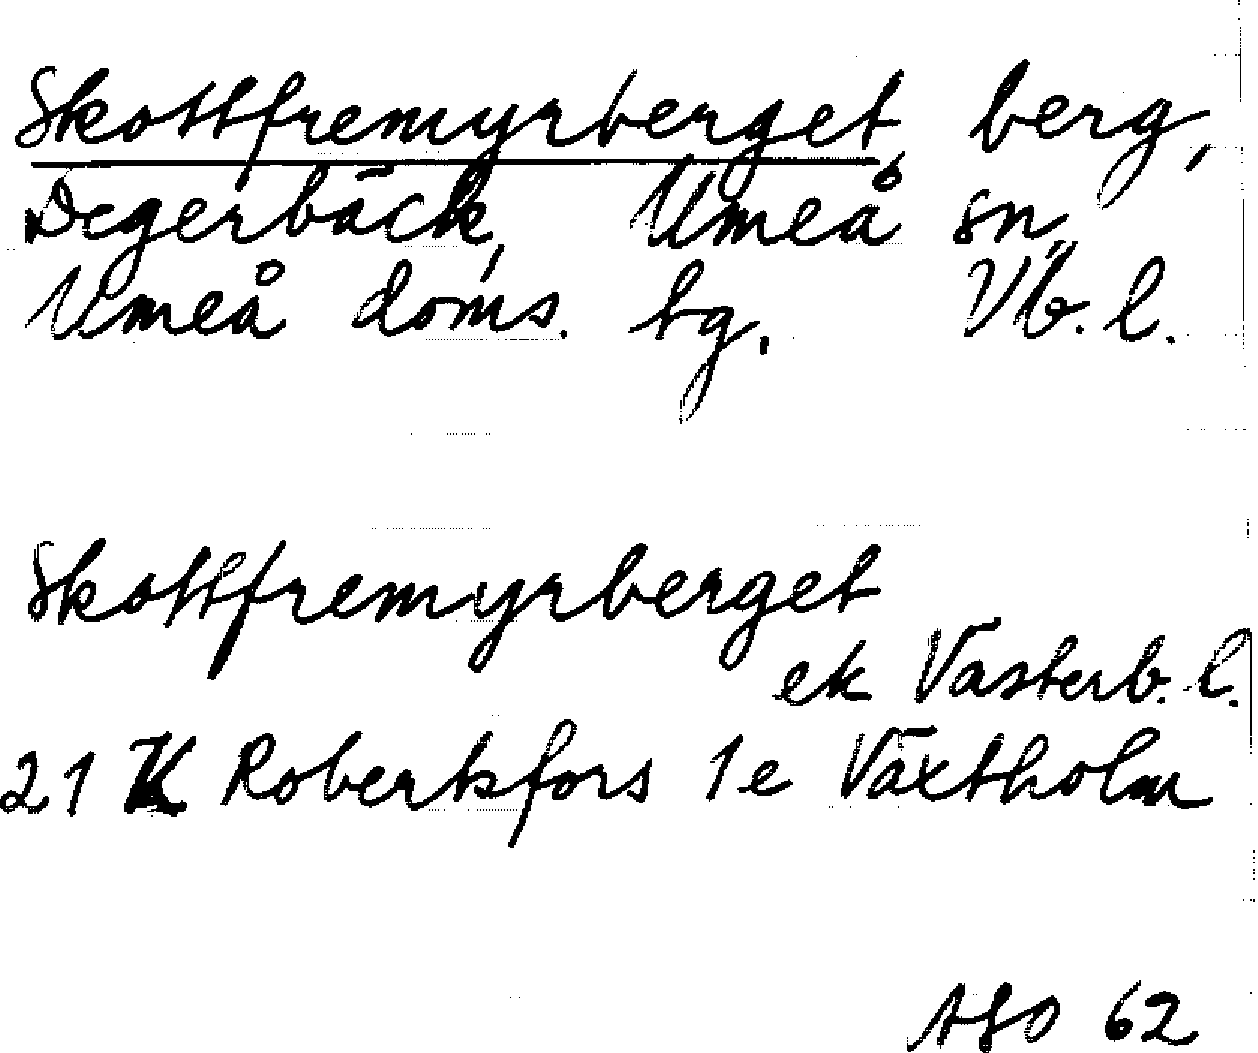 Skottfremyrberget, berg,
Degerbäck, Umeå sn,
Umeå doms. tg. Vb. l.
Skottfremyrberget
ek Västerb. l.
21 K Robertsfors 1e Växtholm
ASO 62